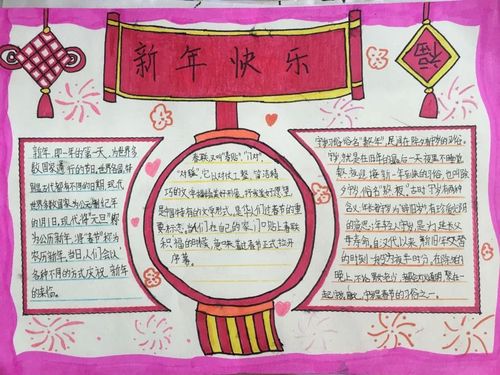 新年快乐
福
新年,即一年的第一天,为世界多
行的节日,世界各国,特
都有不同的日期,现代
世界多数国家为公元制纪年
的1月1日,现代将"元旦"称
为公历新年,将"春节"称为
农历新年,当日,人们会以
各种不同的方式庆祝新年
的来临。
春联又叫"春贴"、"门对"、
"对联",它以对仗工整、简洁精
巧的文字描绘美好形象,抒发美好愿望,
是中国特有的文学形式,是华人们过春节的重
要标志,当人们在自己的家门口贴上春联
和福的时候,意味着过春节正式拉开
序幕。
守岁习俗俗名"熬年",民间有除夕守岁的习俗。
守岁,就是在旧年的最后一天夜里不睡觉
熬夜迎接新一年到来的习俗,也叫除
夕守岁,俗名"熬夜"古时守岁有两种
含义:年长者守岁为"辞旧岁"有珍爱光阴
的意思;年轻人守岁,是为延长父
母寿命,自汉代以来,新旧年交替
的时刻一般为夜半时分,在除夕的
晚上,不论男女老少,都会
起守岁,守岁是春节的习俗之一。